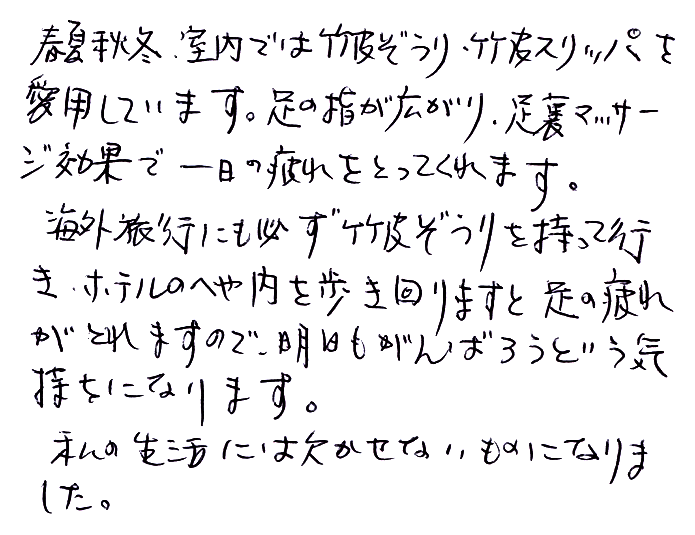 春夏秋冬、室内では竹皮ぞうり、竹皮スリッパを
愛用しています。足の指が広がり、足裏マッサー
ジ効果で一日の疲れをとってくれます。
海外旅行にも必ず竹皮ぞうりを持って行
き、ホテルのへや内を歩き回りますと足の疲れ
がとれますので、明日もがんばろうという気
持ちになります。
私の生活には欠かせないものになりま
した。